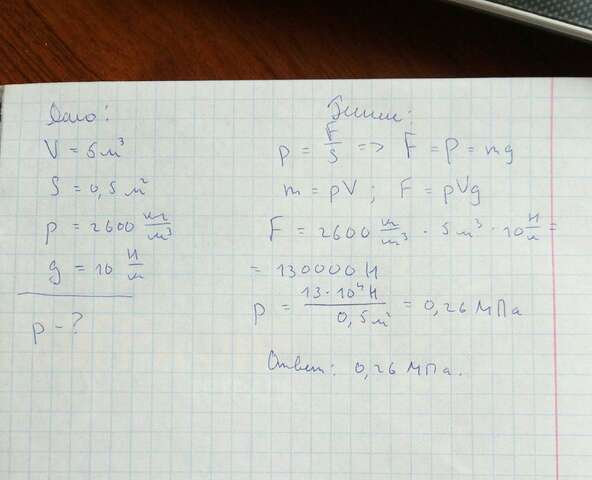 Дано:
V = 5 м³
S = 0,5 м²
ρ = 2600 кг/м³
g = 10 Н/кг
p - ?
Решение:
p = F/S => F = P = mg
m = ρV ; F = ρVg
F = 2600 кг/м³ · 5 м³ · 10 Н/кг =
= 130000 Н
p = 13 · 10⁴ Н / 0,5 м² = 0,26 МПа
Ответ: 0,26 МПа.